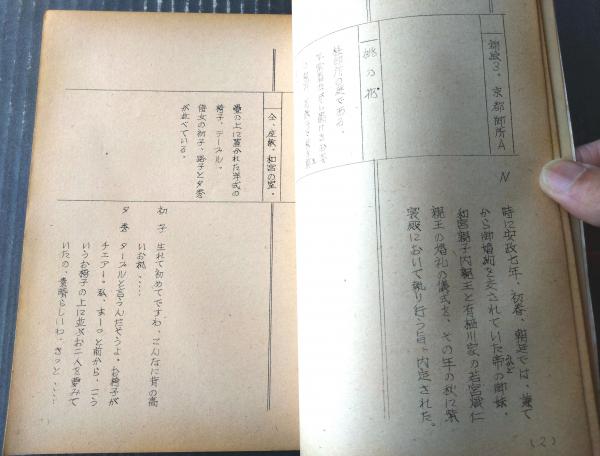 御殿3、京都御所A
桃の花
N
時に安政七年、初春、朝廷では、兼て
から御婚約を交されていた帝の御妹、
和宮親子内親王と有栖川家の若宮熾仁
親王の婚礼の儀式を、その年の秋に紫
宸殿において執り行う旨、内定された。
(2)
仝、座敷、和宮の室、
畳の上に置かれた洋式の
椅子、テーブル、
侍女の初子、路子と夕秀
が並べている。
初子 生れて初めてですわ、こんなに背の高
いお机、……
夕秀 テーブルと言うんだそうよ。お椅子が
チェアー。私、ずーっと前から、こう
いうお椅子の上に並ぶお二人を夢みて
いたの、素晴らしいわ、きっと、……